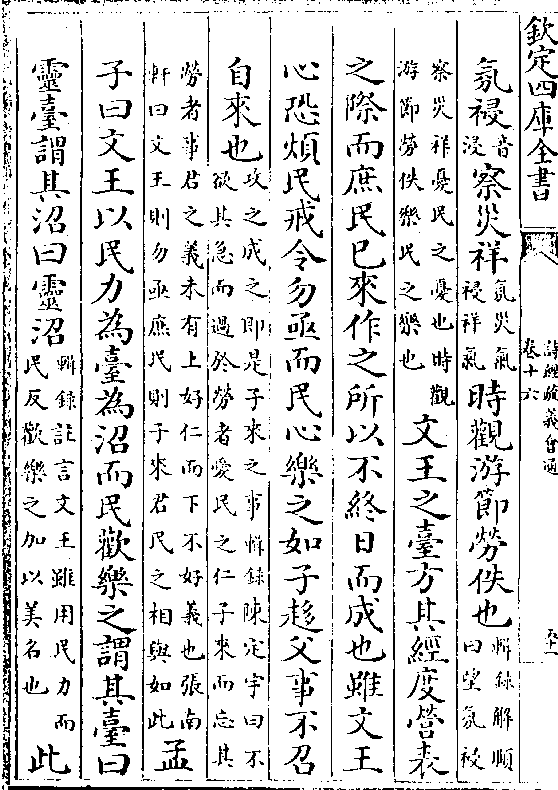 欽定四庫全書
詩經疏義會通
卷十六
氛祲音浸察災祥氛災氣祲祥氣時觀游節勞佚也輯録解頤曰望氛祲
察災祥憂民之憂也時觀游節勞佚樂民之樂也文王之臺方其經度營表
之際而庶民已來作之所以不終日而成也雖文王
心恐煩民戒令勿亟而民心樂之如子趍父事不召
自來也攻之成之即是子來之事輯録陳定宇曰不欲其急而過於勞者愛民之仁子來而忘其
勞者事君之義未有上好仁而下不好義也張南軒曰文王則勿亟庶民則子來君民之相與如此孟
子曰文王以民力為臺為沼而民歡樂之謂其臺曰
靈臺謂其沼曰靈沼輯録註言文王雖用民力而民反歡樂之加以美名也此